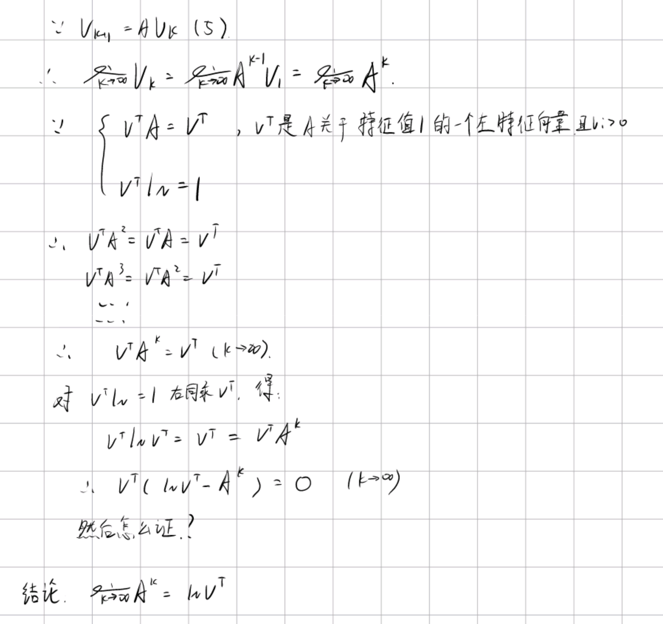 ∵ V_{k+1} = A V_k (5)
∴ lim_{k→∞} V_k = lim_{k→∞} A^{k-1} V_1 = lim_{k→∞} A^k.
∵ { V^T A = V^T , V^T 是 A 关于 特征值 1 的一个左特征向量 且 v_i > 0
V^T 1n = 1
∴ V^T A^2 = V^T A = V^T
V^T A^3 = V^T A^2 = V^T
∴ V^T A^k = V^T (k→∞).
对 V^T 1n = 1 右同乘 V^T, 得:
V^T 1n V^T = V^T = V^T A^k
∴ V^T ( 1n V^T - A^k ) = 0 (k→∞)
然后怎么证?
结论. lim_{k→∞} A^k = 1n V^T